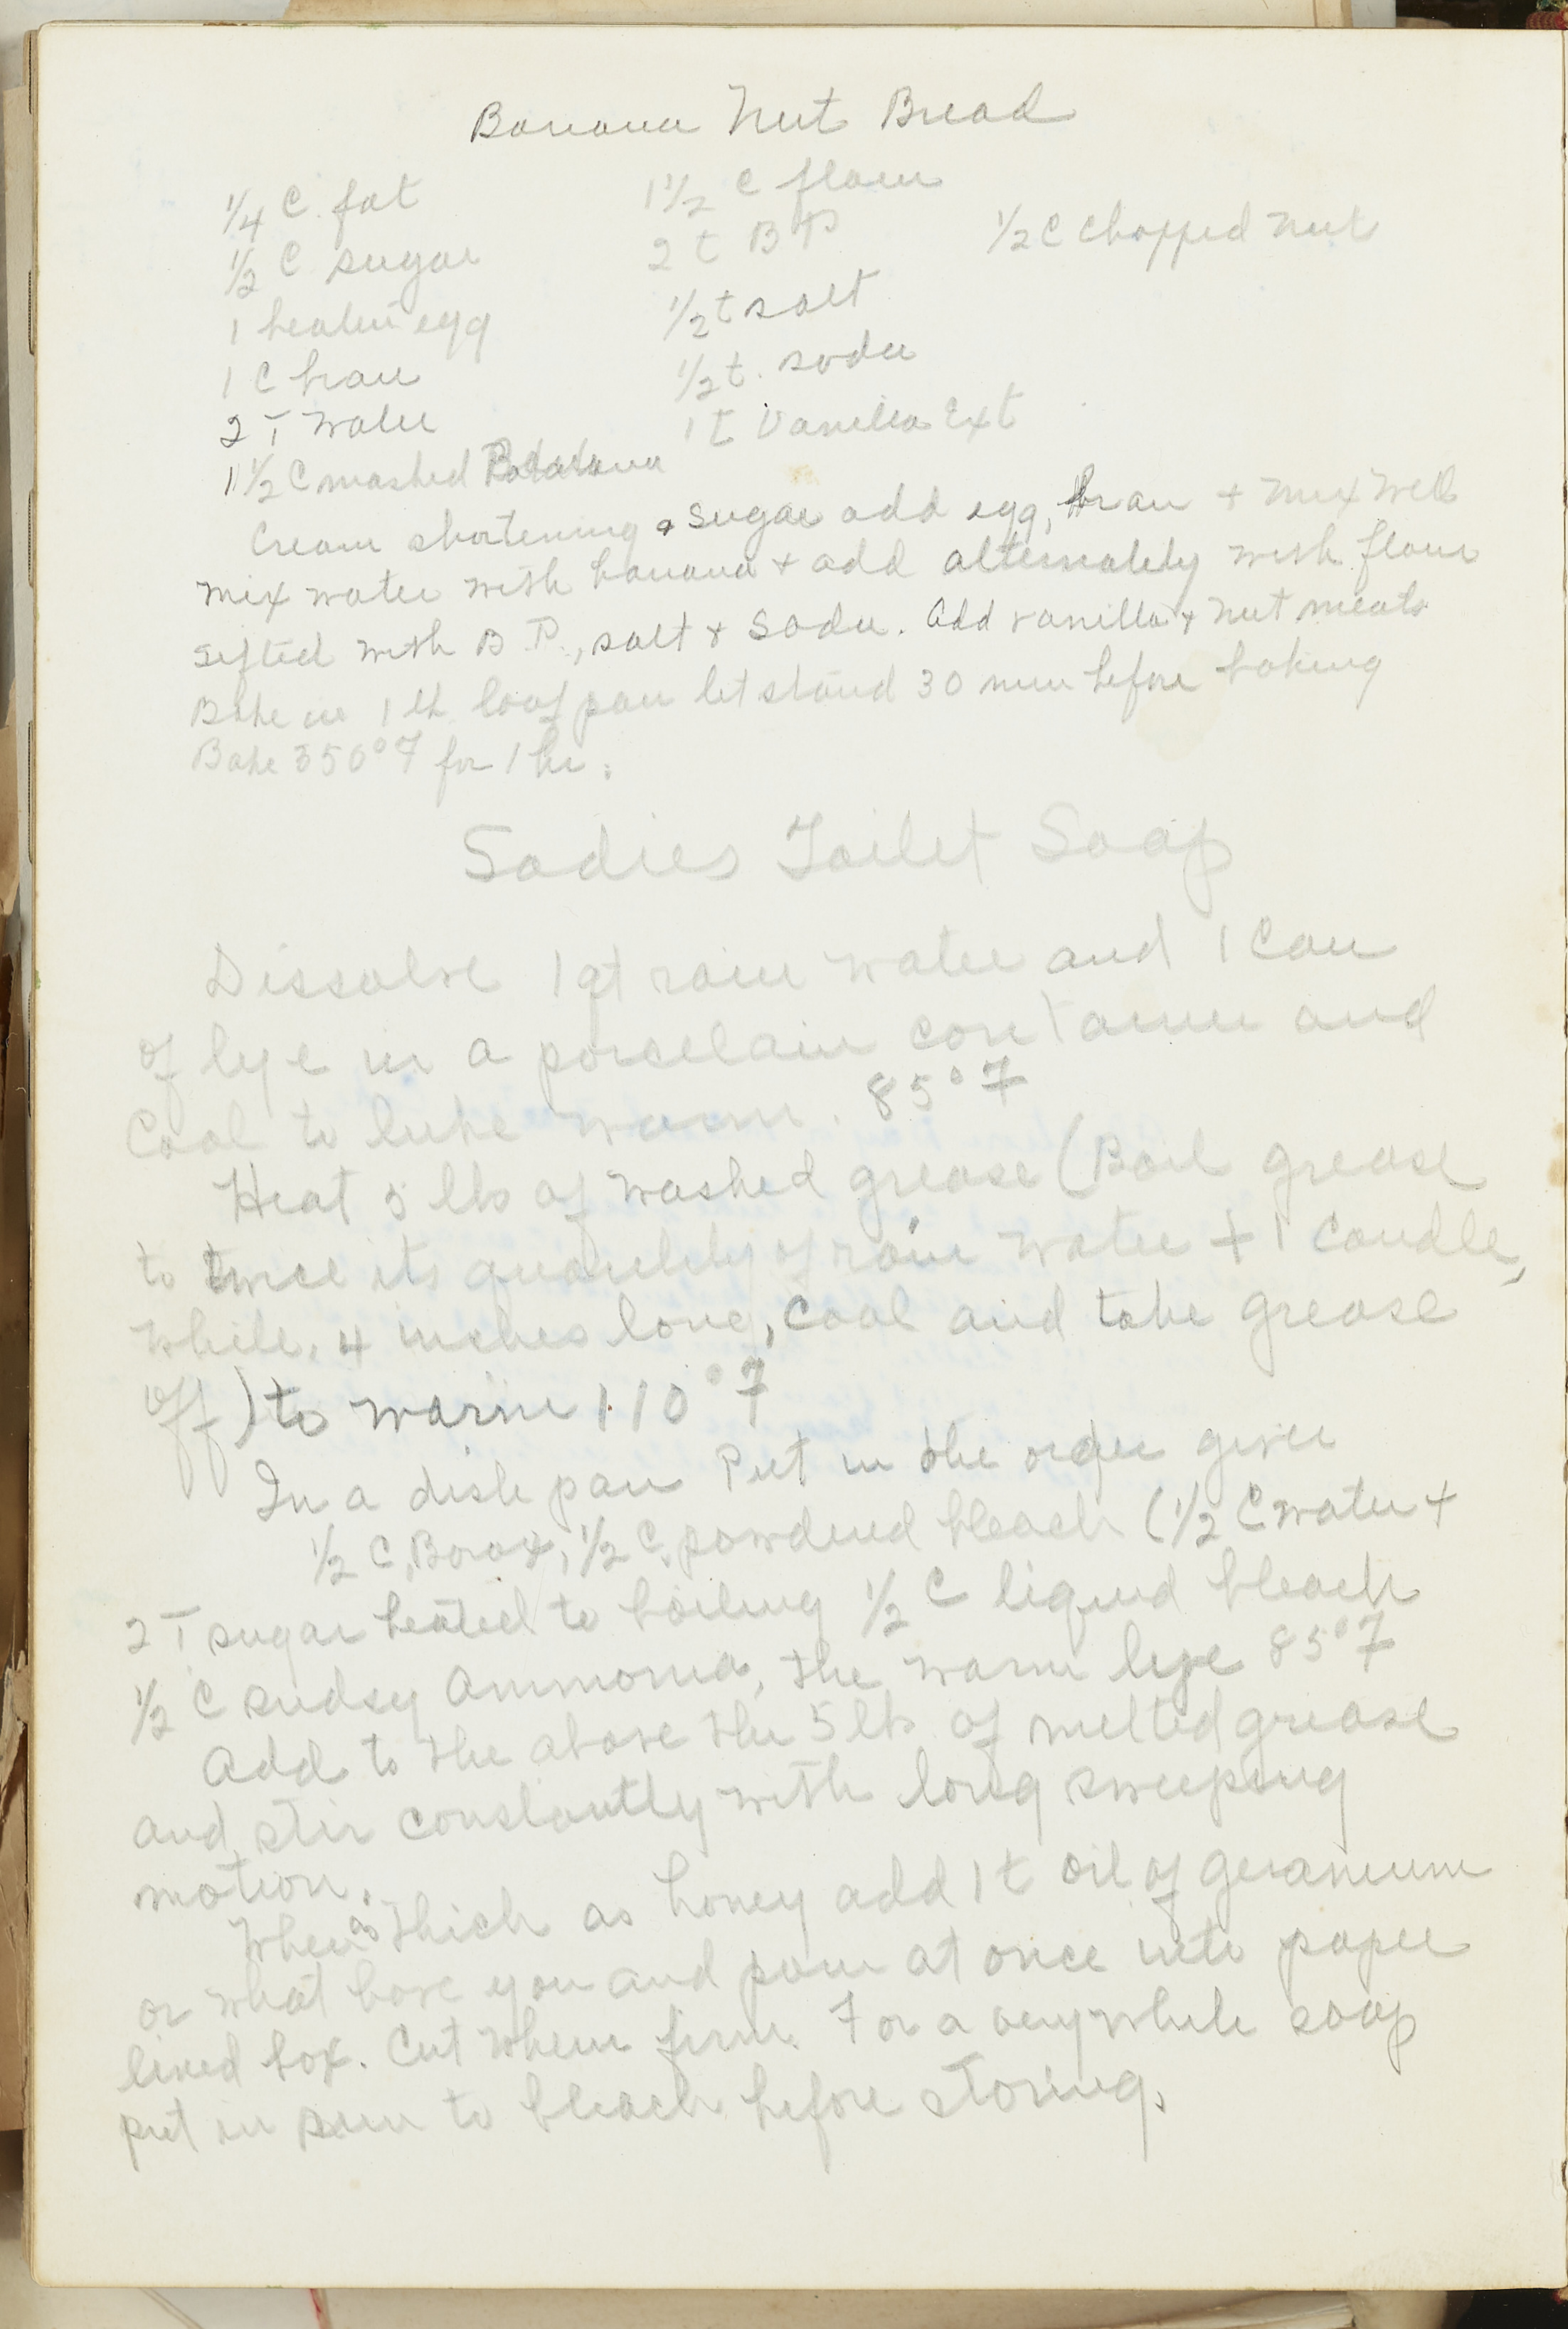 Banana Nut Bread
1/4 C fat
1/2 C sugar
1 beaten egg
1 C bran
2 T water
1 1/2 C mashed Banana
1 1/2 C flour
2 t B P
1/2 t salt
1/2 t. soda
1 t Vanilla Ext
1/2 C Chopped Nut
Cream shortening & sugar add egg, bran + mix well
Mix water with banana + add alternately with flour
sifted with B P., salt + soda. Add vanilla + nut meats
Bake in 1 lb loaf pan let stand 30 min before baking
Bake 350° F for 1 hr.
Sadies Toilet Soap
Dissolve 1 qt rain water and 1 Can
of lye in a porcelain container and
Cool to luke warm. 85° F
Heat 5 lbs of washed grease (Boil grease
to twice its quantity of rain water + 1 Candle,
white, 4 inches long, Cool and take grease
off) to warm 110° F
In a dish pan Put in the order given
1/2 C, Borax, 1/2 C. powdered bleach (1/2 C water +
2 T sugar heated to boiling 1/2 C liquid bleach
1/2 C sudsy Ammonia, the warm lye 85° F
Add to the above the 5 lbs of melted grease
and stir constantly with long sweeping
motion.
When as thick as honey add 1 t oil of geranium
or what have you and pour at once into paper
lined box. Cut when firm. For a very white soap
put in sun to bleach before storing.